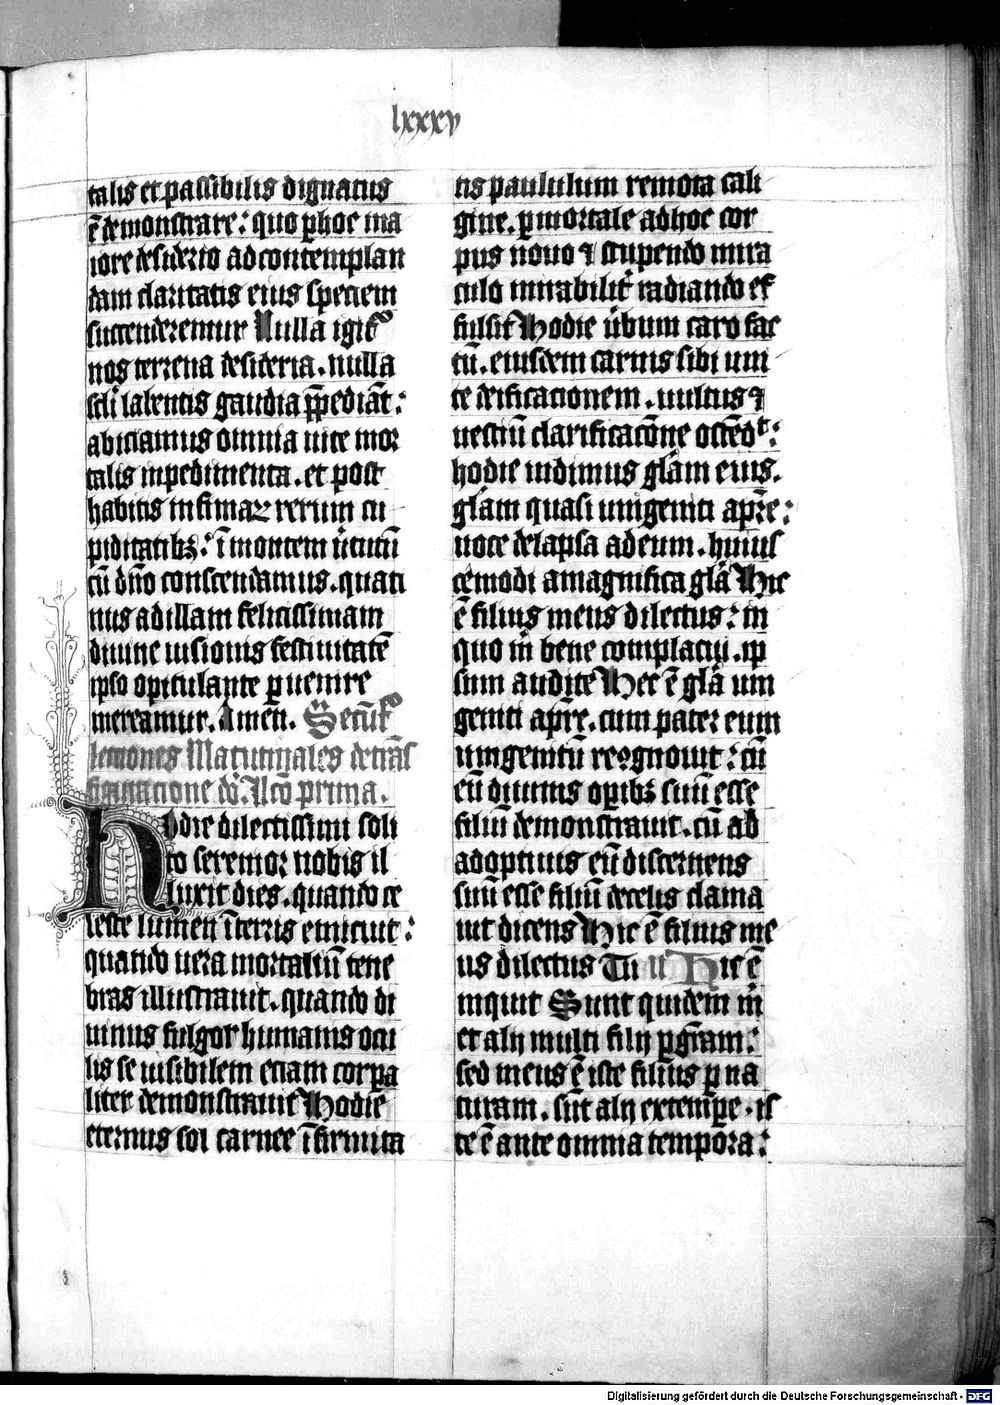 lxxxv
talis et passibilis dignatus
ē demonstrare: quo p hoc ma
iore desiderio ad contemplan
dam claritatis eius speciem
succenderemur Nulla igit̄
nos terrena desideria. nulla
scl̄i labentis gaudia p̄pediāt:
abiciamus omnia vite mor
talis inpedimenta. et post
habitis infimaꝝ rerum cu
piditatibꝫ: ī montem v̄tutū
cū dn̄o conscendamus. quati
nus ad illam felicissimam
diuine visionis festiuitatē
ipso opitulante puenire
mereamur. Amen. Secūt̄
lectiones Matutinales de trās
figuratione dn̄i. Lc̄o prima.
Hodie dilectissimi soli
to seremor nobis il
luxit dies. quando ce
leste lumen ī terris emicuit:
quando vera mortaliū tene
bras illustrauit. quando di
uinus fulgor humanis ocu
lis se visibilem etiam corpa
liter demonstrauit Hodie
eternus sol carnee īfirmita
tis paululum remota cali
gine. p mortale adhoc cor
pus nouo ⁊ stupendo mira
culo mirabilit̄ radiando ef
fulsit Hodie v̄bum caro fac
tū. eiusdem carnis sibi uni
te deificationem. vultus ⁊
vestiū clarificacōne ostēdᵗ:
hodie vidimus gl̄am eius.
gl̄am quasi vnigeniti a pr̄e:
voce delapsa ad eum. huius
cēmodi a magnifica gl̄a Hic
ē filius meus dilectus: in
quo m̄ bene complacui. ip
sum audite Hec ē gl̄a vni
geniti a pr̄e. cum pater eum
vnigenitū recognouit: cū
eū diuinis opibꝫ suū esse
filiū demonstrauit. cū ab
adoptiuis eū discernens
suū esse filiū de celis clama
uit dicens Hic ē filius me
us dilectus Tu Hic ē
inquit Sunt quidem m̄
et alij multi filij p gr̄am:
sed meus ē iste filius p na
turam. sūt alij ex tempe. is
te ē ante omnia tempora:
Digitalisierung gefördert durch die Deutsche Forschungsgemeinschaft - DFG